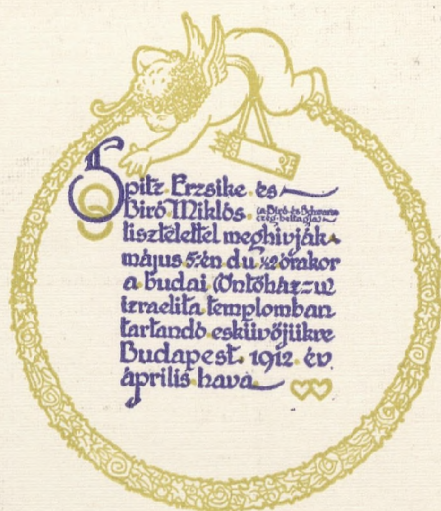 Spitz Erzsike és
Biró Miklós (a Biró és Schwarz
czég beltagja)
tisztelettel meghivják
május 5-én du ½2 órakor
a budai Öntőház-u
izraelita templomban
tartandó esküvőjükre
Budapest, 1912. év
április hava